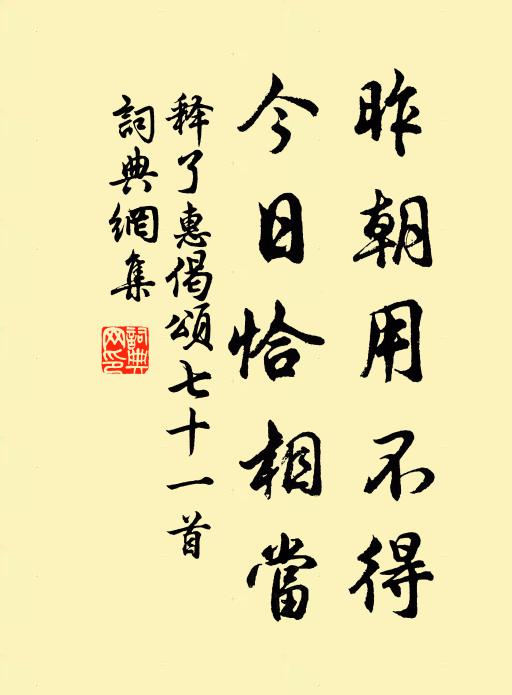 昨朝用不得
今日恰相當
释了惠偈頌七十一首
詞典網集
詞典網印